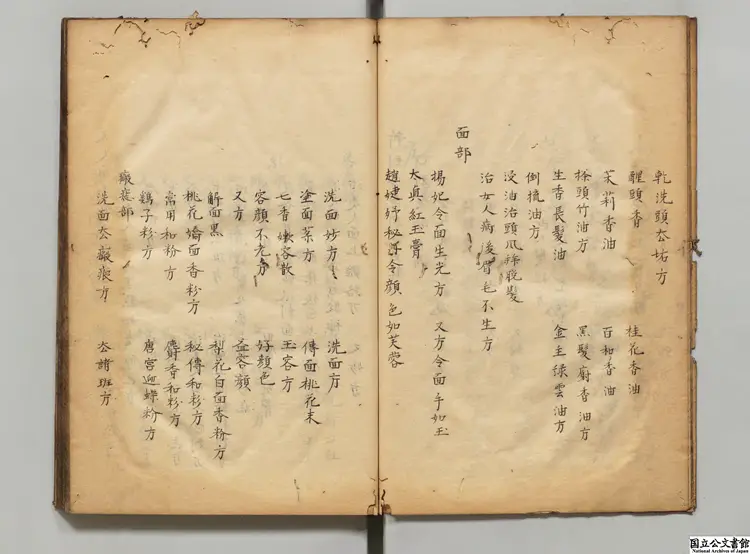 乾洗頭去垢方
醒頭香 桂花香油
茉莉香油 百和香油
搽頭竹油方 黑髮麝香油方
生香長髮油 金主綠雲油方
倒梳油方
浸油治頭風癢脫髮
治女人病後眉毛不生方
面部
楊妃令面生光方 又方令面手如玉
太真紅玉膏
趙婕妤秘丹令顏色如芙蓉
洗面妙方 洗面方
塗面藥方 傅面桃花末
七香嫩容散 玉容方
容顏不老方 好顏色
又方 益容顏
解面黑 梨花白面香粉方
桃花嬌面香粉方 秘傳和粉方
常用和粉方 麝香和粉方
雞子粉方 唐宮迎蝶粉方
瘢痣部
洗面去瘢痕方 去諸斑方
国立公文書館
National Archives of Japan